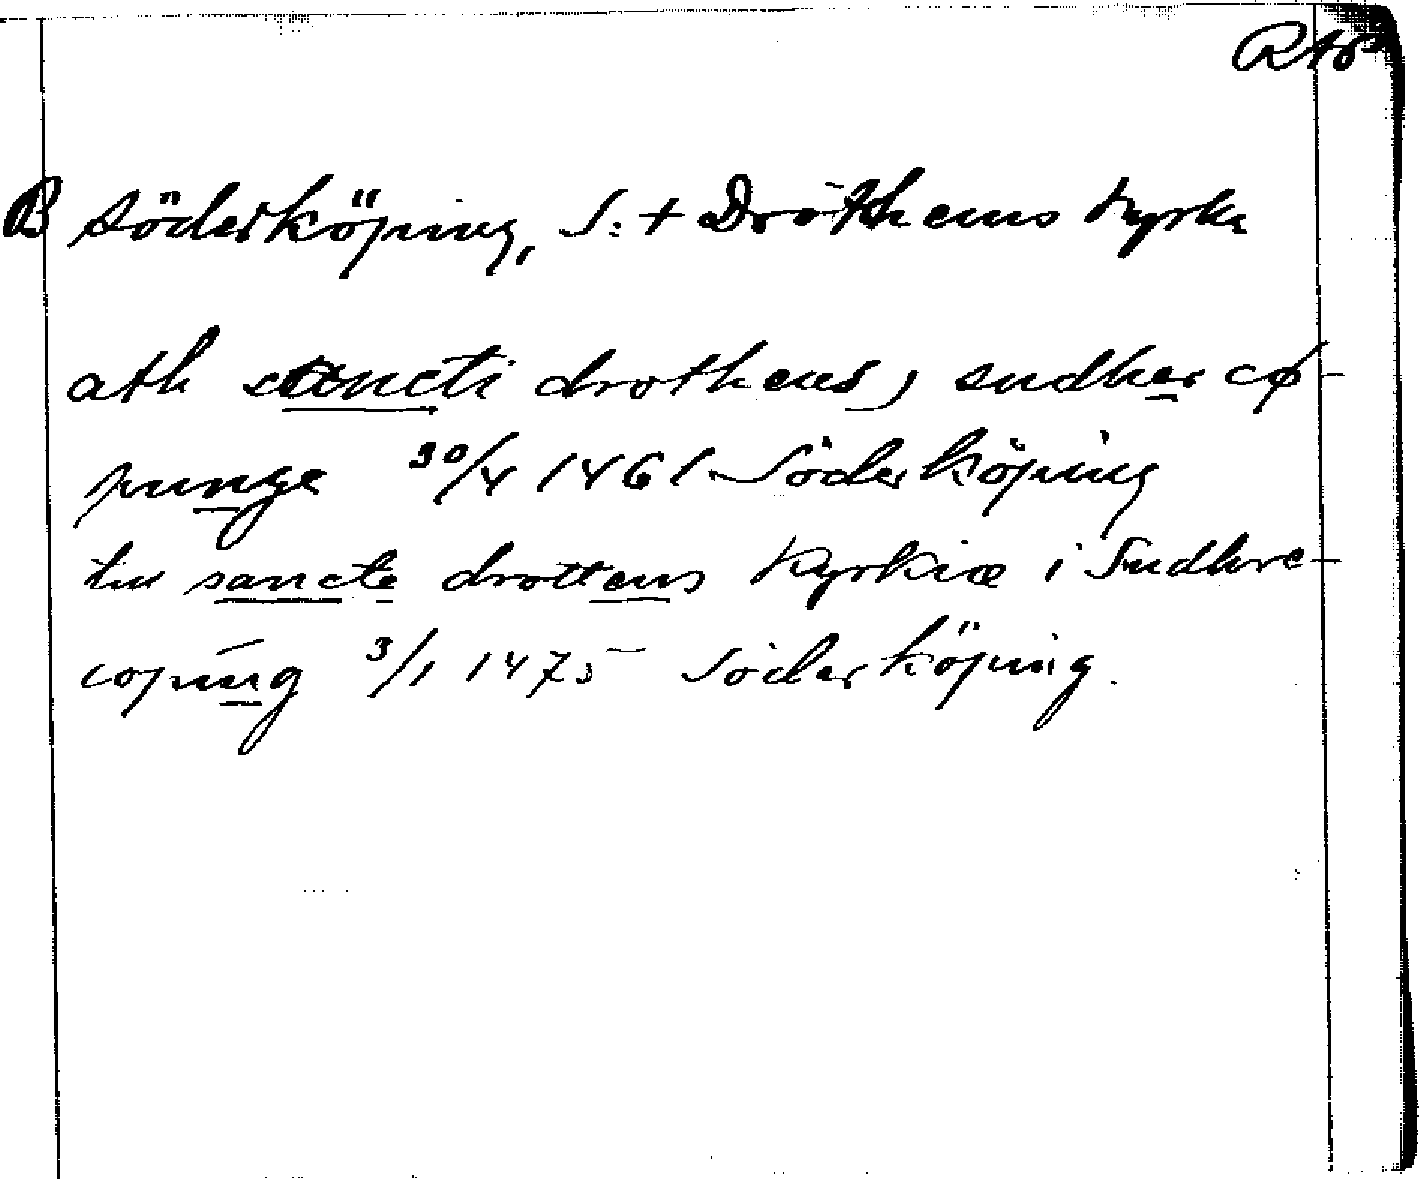 RAö
B Söderköping, S:t Drothems kyrka
ath sancti drothens, sudher cø-
punge 30/4 1461 Söderköping
till sancte drottens kyrkiæ i Sudhre-
coping 3/1 1475 Söderköping.